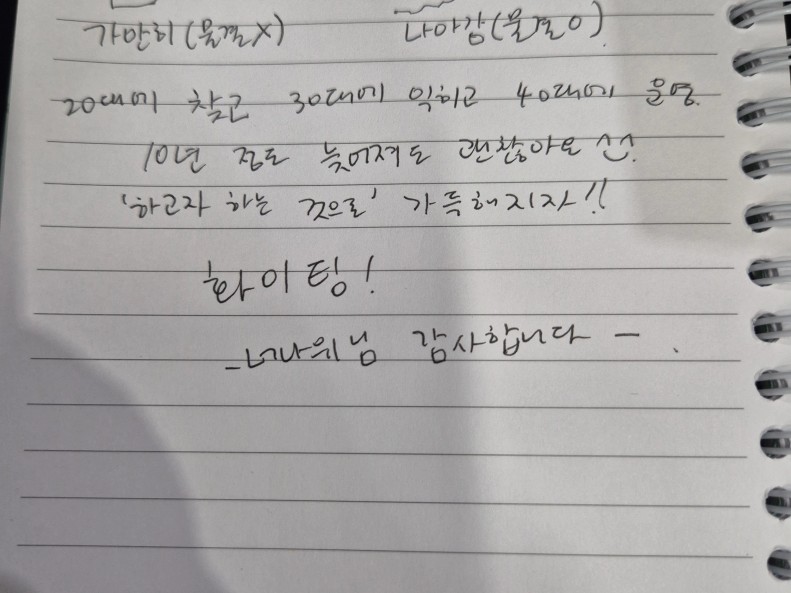 가만히 (물결X) 나아감 (물결O)
20대에 찾고 30대에 익히고 40대에 운영.
10년 정도 늦어져도 괜찮아요 ^^.
'하고자 하는 것으로' 가득해지자!!
화이팅!
- 너나위님 감사합니다 - .